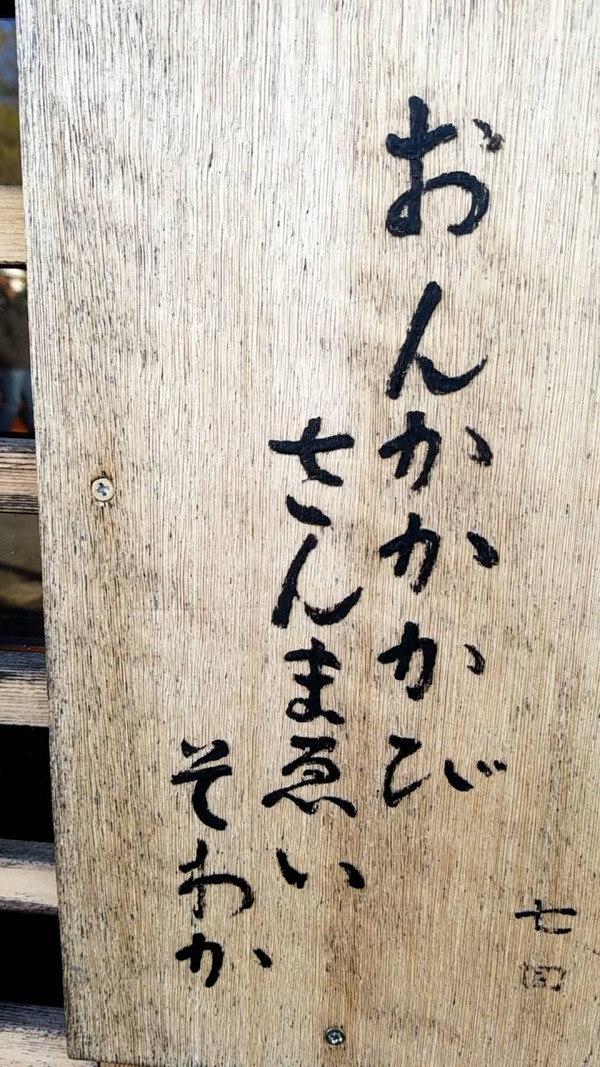 七回
おんかかかび
さんまゑい
そわか